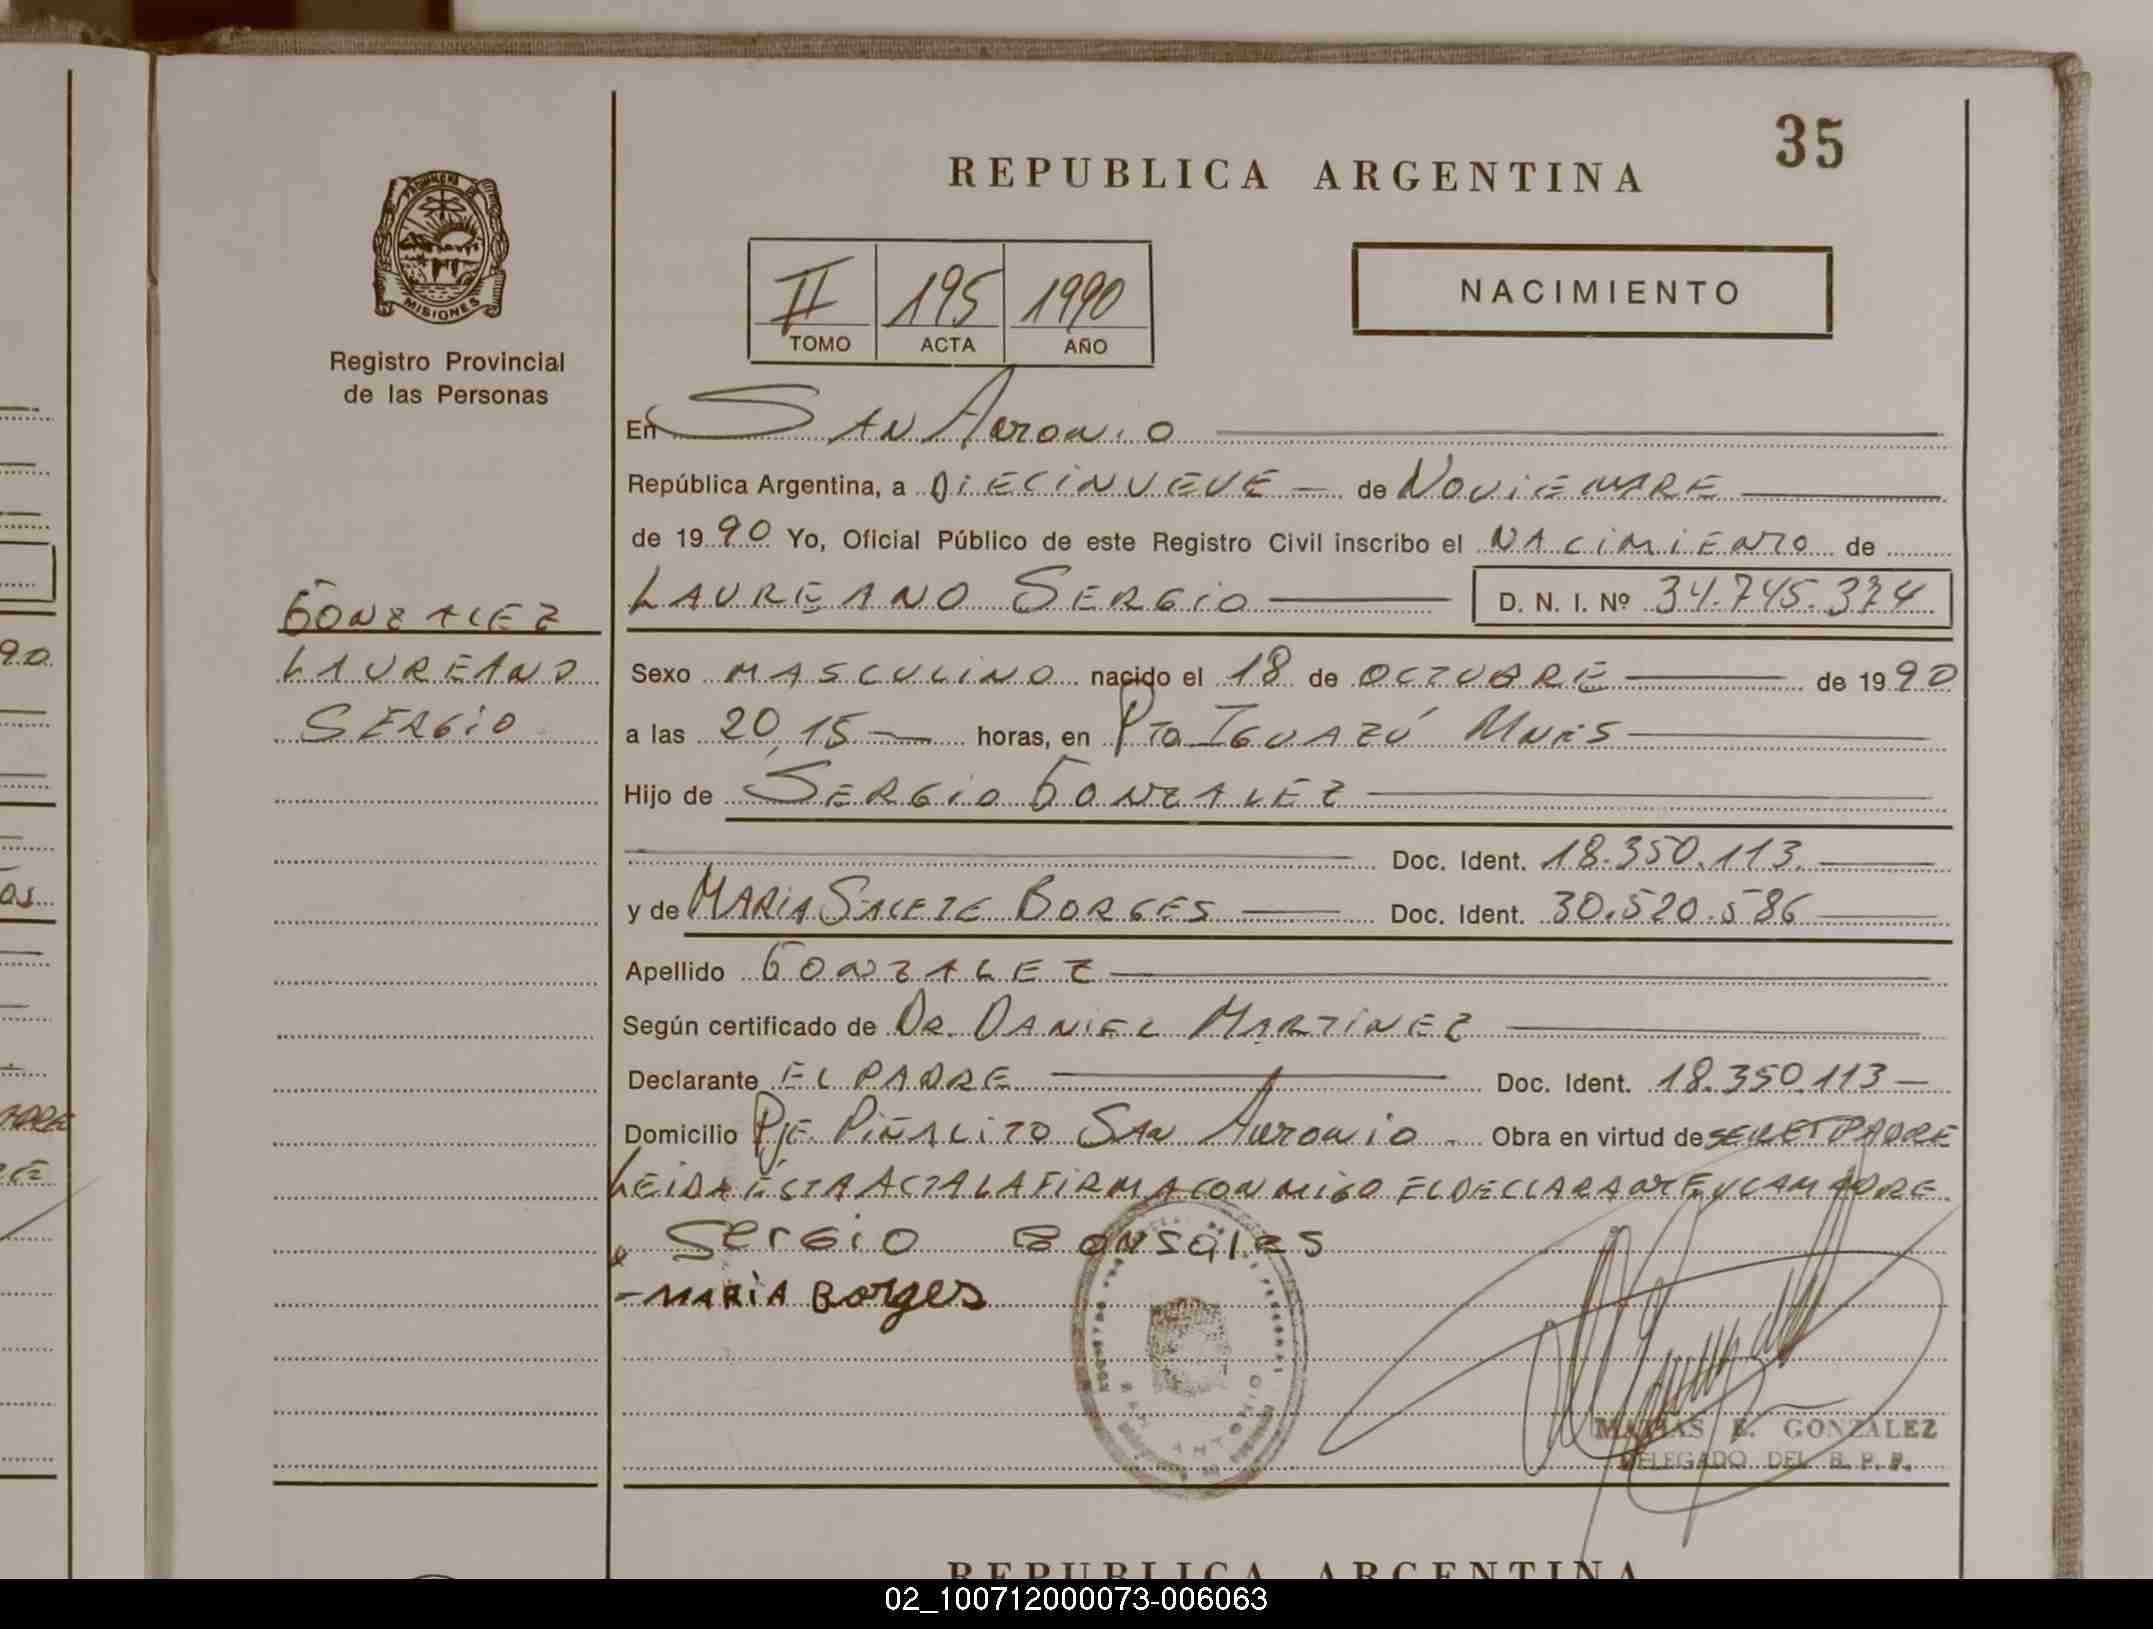 35
REPUBLICA ARGENTINA
PROVINCIA DE
MISIONES
Registro Provincial
de las Personas
II 195 1990
TOMO ACTA AÑO
NACIMIENTO
En SAN ANTONIO
República Argentina, a DIECINUEVE de NOVIEMBRE
de 1990 Yo, Oficial Público de este Registro Civil inscribo el NACIMIENTO de
LAUREANO SERGIO D. N. I. Nº 34.745.374
GONZALEZ
LAUREANO
SERGIO
Sexo MASCULINO nacido el 18 de OCTUBRE de 1990
a las 20,15 horas, en Pto IGUAZÚ Mnes
Hijo de SERGIO GONZALEZ
Doc. Ident. 18.350.113.
y de MARIA SALETE BORGES Doc. Ident. 30.520.586
Apellido GONZALEZ
Según certificado de DR. DANIEL MARTINEZ
Declarante EL PADRE Doc. Ident. 18.350.113
Domicilio Pje PIÑALITO SAN ANTONIO Obra en virtud de SER EL PADRE
LEIDA ESTA ACTA LA FIRMA CONMIGO EL DECLARANTE Y LA MADRE
Sergio Gonsales
MARIA Borges
SAN ANTONIO
MATIAS E. GONZALEZ
DELEGADO DEL R. P. P.
REPUBLICA ARGENTINA
02_100712000073-006063